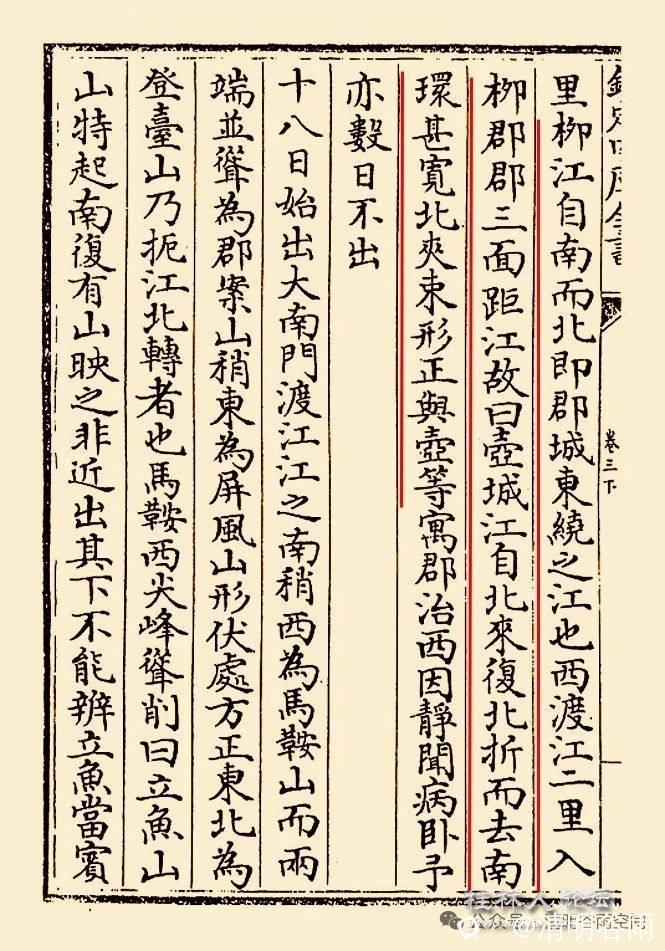 欽定四庫全書
卷三下
里柳江自南而北即郡城東繞之江也西渡江二里入
柳郡郡三面距江故曰壺城江自北來復北折而去南
環甚寬北夾束形正與壺等寓郡治西因靜聞病卧予
亦數日不出
十八日始出大南門渡江江之南稍西為馬鞍山而兩
端並聳為郡案山稍東為屏風山形伏處方正東北為
登臺山乃扼江北轉者也馬鞍西尖峰聳削曰立魚山
山特起南復有山映之非近出其下不能辨立魚當賓
桂林人论坛
公众号
@清明谷雨